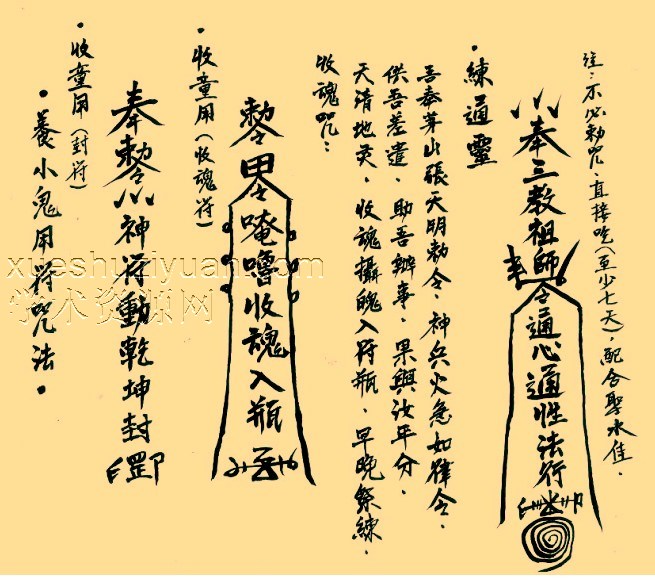 註：不必勅咒，直接吃（至少七天），配合聖水佳。
奉三教祖師令通心通性法行
·練通靈
吾奉茅山張天明勅令，神兵火急如律令，
供吾差遣，助吾辦事，果與汝年分，
天清地灵，收魂攝魄入符瓶，早晚祭練，
收魂咒：
勅令
唵嚕收魂入瓶
·收童用（收魂符）
奉勅令神符動乾坤封罡
·收童用（封符）
·養小鬼用符咒法。
xueshuziyuan.com
学术资源网